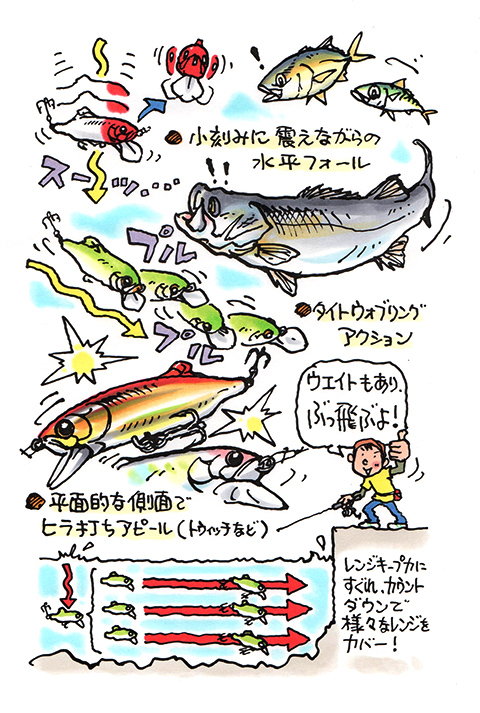 !
小刻みに震えながらの
水平フォール
スーッ...
!!
プル
プル
タイトウォブリング
アクション
ウエイトもあり、
ぶっ飛ぶよ!
平面的な側面で
ヒラ打ちアピール(トゥイッチなど)
レンジキープ力に
すぐれ、カウント
ダウンで
様々なレンジを
カバー!